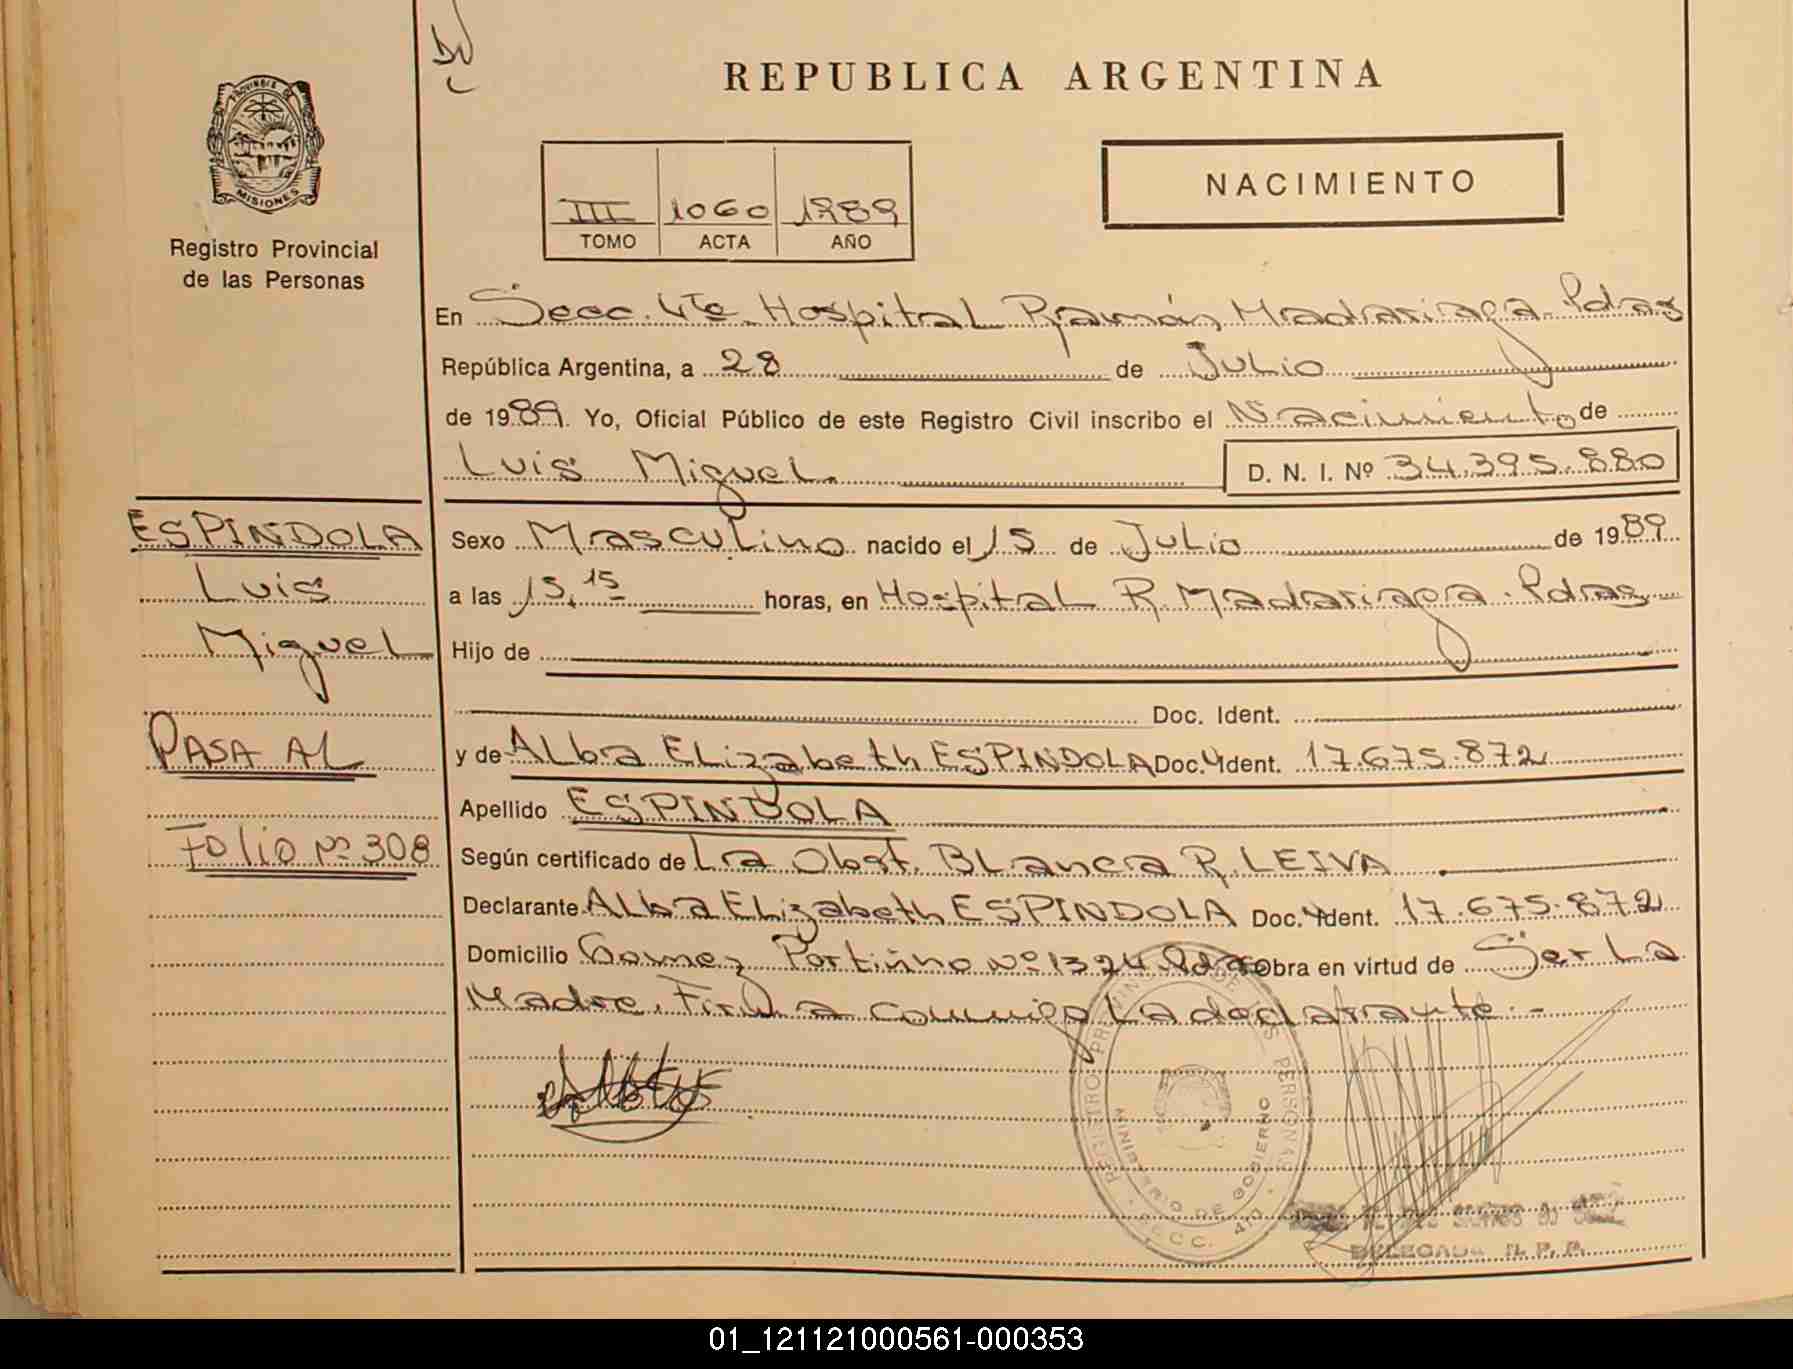 REPUBLICA ARGENTINA
PROVINCIA DE
MISIONES
Registro Provincial
de las Personas
III 1060 1989
TOMO ACTA AÑO
NACIMIENTO
En Secc. 4ta. Hospital Ramón Madariaga - Pdas
República Argentina, a 28 de Julio
de 1989. Yo, Oficial Público de este Registro Civil inscribo el Nacimiento de
Luis Miguel. D. N. I. Nº 34.395.880
ESPINDOLA
Luis
Miguel
PASA AL
Folio Nº 308
Sexo Masculino nacido el 15 de Julio de 1989
a las 15.15 horas, en Hospital R. Madariaga - Pdas
Hijo de
Doc. Ident.
y de Alba Elizabeth ESPINDOLA Doc. Ident. 17.675.872
Apellido ESPINDOLA
Según certificado de La Obst. Blanca R. LEIVA
Declarante Alba Elizabeth ESPINDOLA Doc. Ident. 17.675.872
Domicilio Gomez Portinho Nº 1324 Pdas Obra en virtud de Ser La
Madre. Firma conmigo La declarante.-
REGISTRO PROVINCIAL DE LAS PERSONAS
MINISTERIO DE GOBIERNO
SECC. 4ta
DELEGADA R. P. P.
01_121121000561-000353